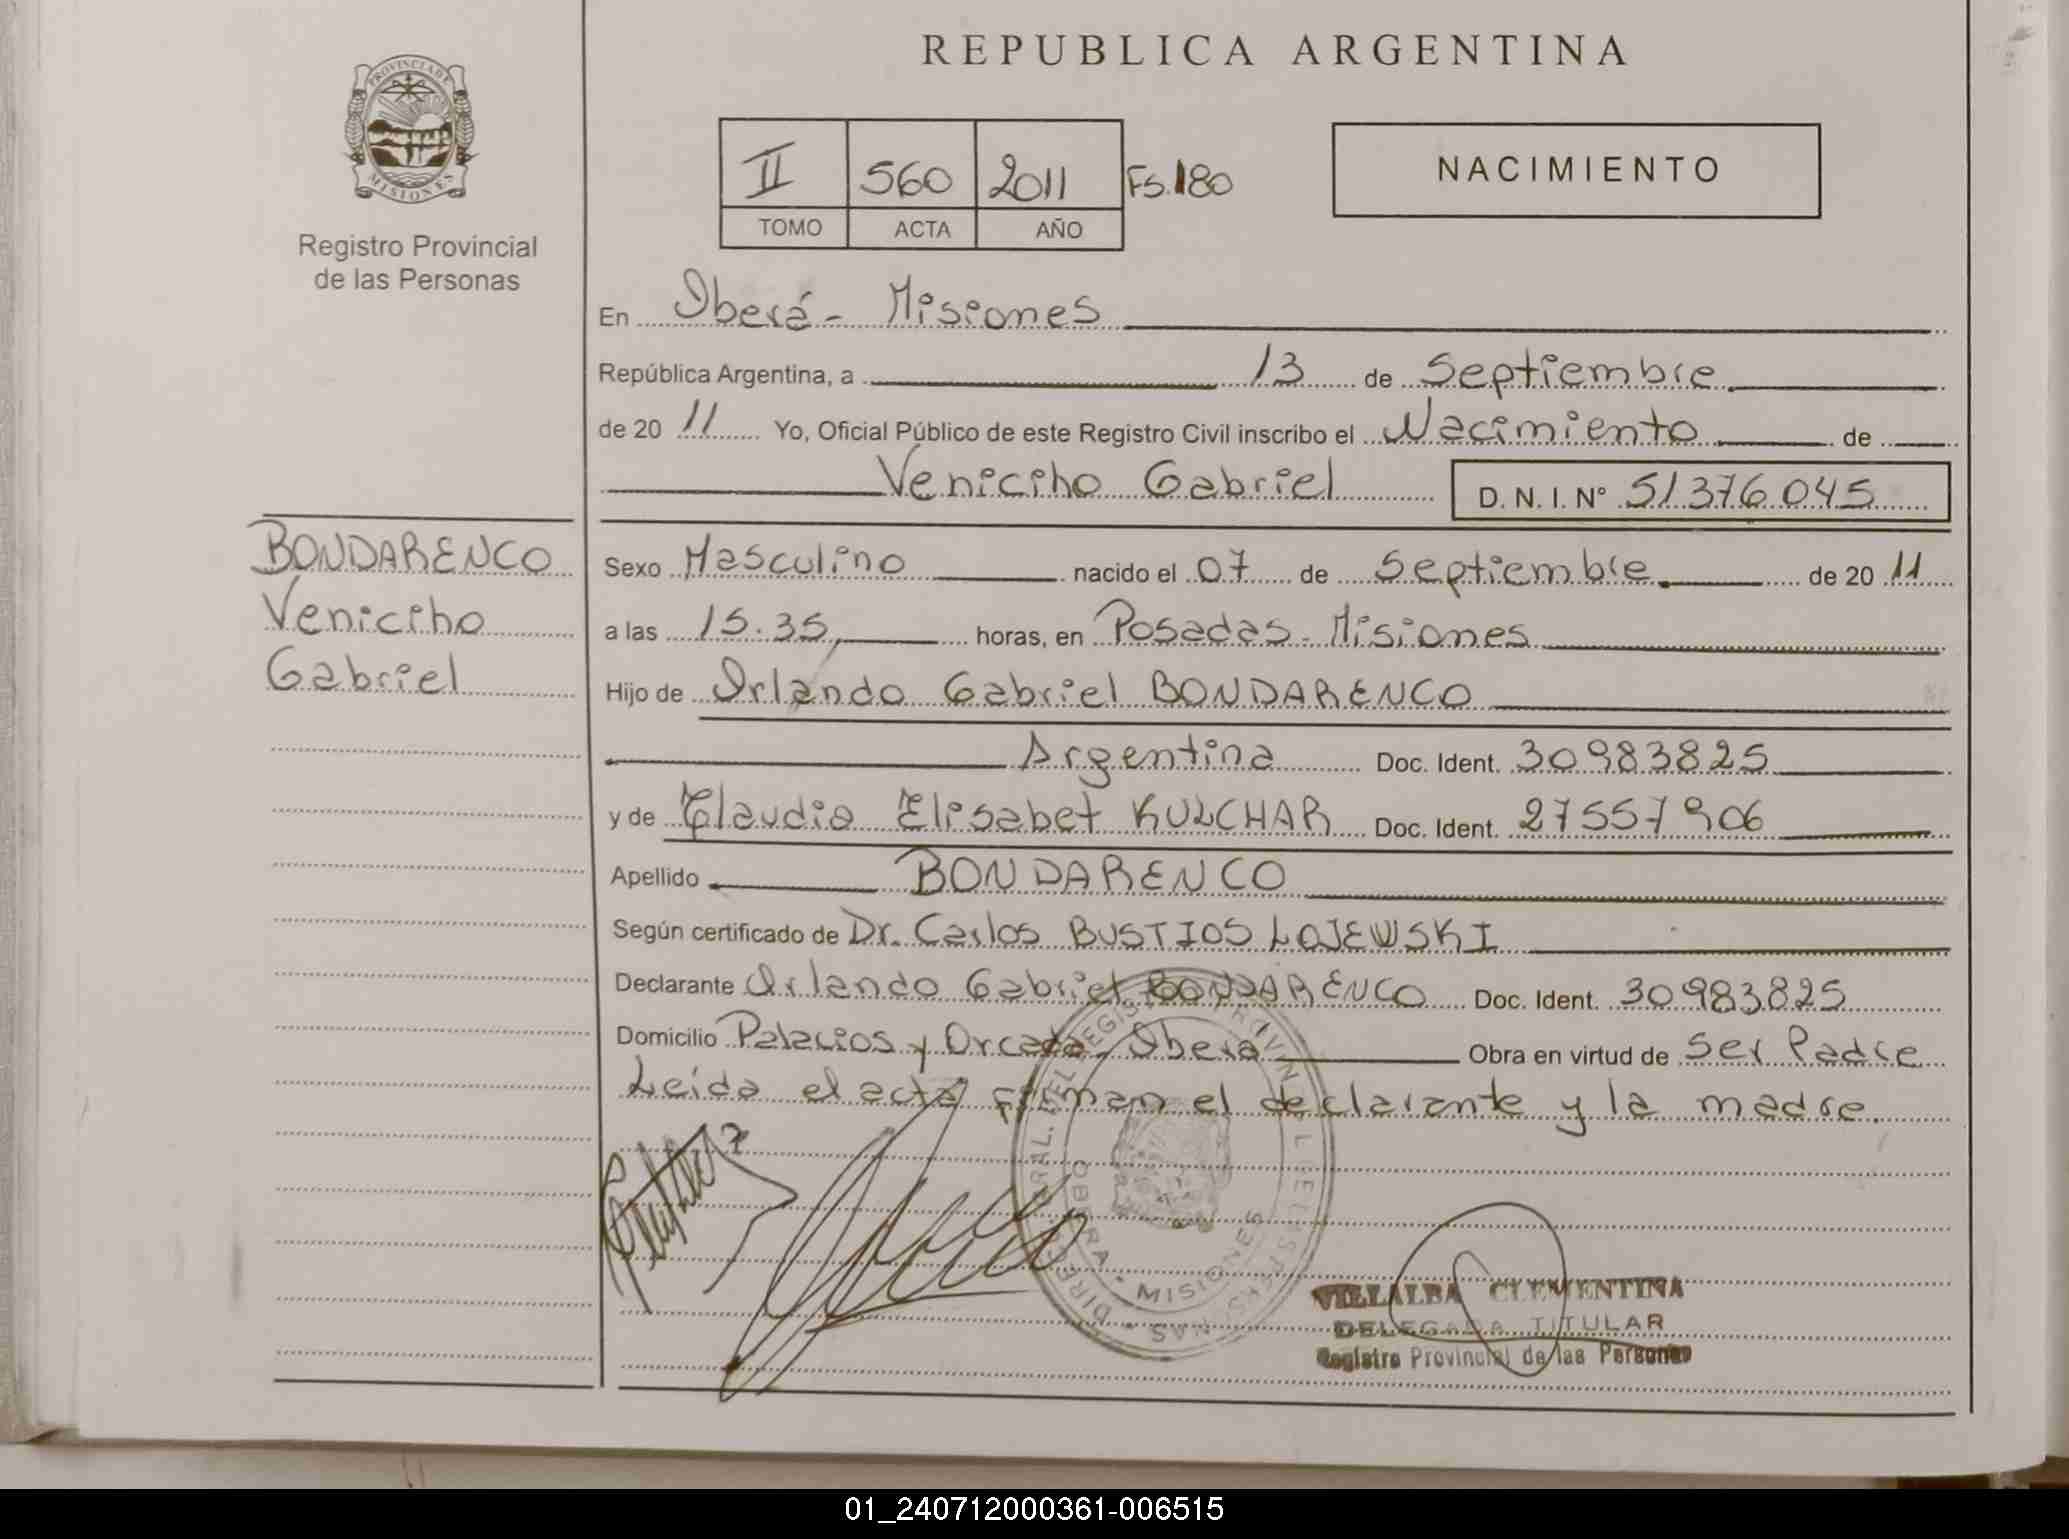 REPUBLICA ARGENTINA
PROVINCIA DE
MISIONES
Registro Provincial
de las Personas
II 560 2011 FS.180
TOMO ACTA AÑO
NACIMIENTO
En Oberá - Misiones
República Argentina, a 13 de Septiembre
de 20 11 Yo, Oficial Público de este Registro Civil inscribo el Nacimiento de
Veniciho Gabriel D. N. I. Nº 51376.045
BONDARENCO
Veniciho
Gabriel
Sexo Masculino nacido el 07 de Septiembre de 20 11
a las 15.35 horas, en Posadas - Misiones
Hijo de Orlando Gabriel BONDARENCO
Argentina Doc. Ident. 30983825
y de Claudia Elisabet KULCHAR Doc. Ident. 27557906
Apellido BONDARENCO
Según certificado de Dr. Carlos BUSTIOS LOJEWSKI
Declarante Orlando Gabriel BONDARENCO Doc. Ident. 30983825
Domicilio Palacios y Orcada - Oberá Obra en virtud de Ser Padre
Leída el acta firman el declarante y la madre.
DIRECC. GRAL. DEL REGISTRO PROVINCIAL DE LAS PERSONAS
OBERA - MISIONES
VILLALBA CLEMENTINA
DELEGADA TITULAR
Registro Provincial de las Personas
01_240712000361-006515